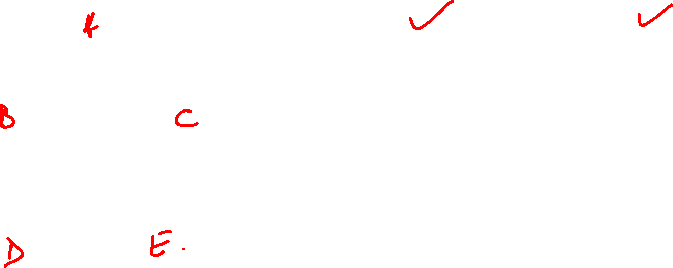 A ✓ ✓
B C
D E.